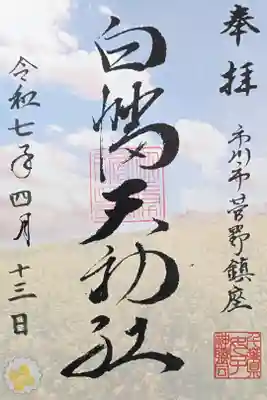 奉拝
市川市菅野鎮座
白幡天神社
令和七年四月十三日